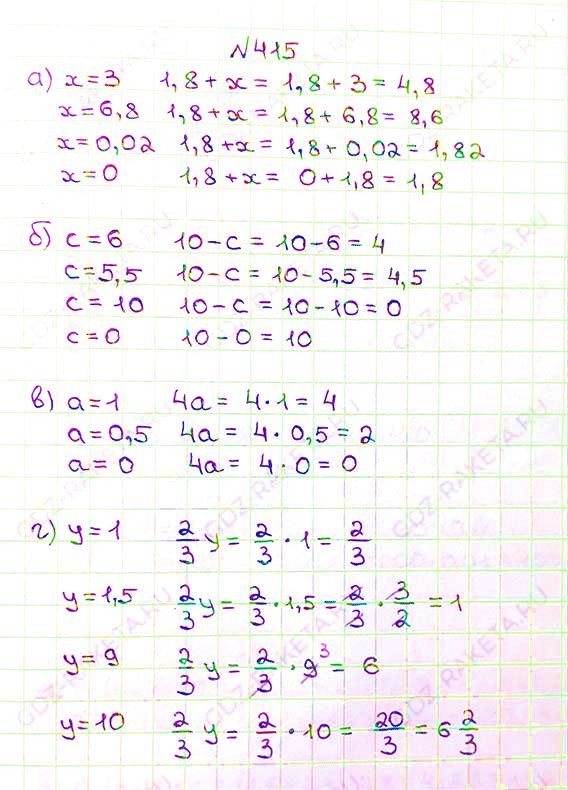 №415
а) x=3 1,8+x = 1,8+3=4,8
x=6,8 1,8+x = 1,8+6,8= 8,6
x=0,02 1,8+x= 1,8+0,02=1,82
x=0 1,8+x= 0+1,8=1,8
б) c=6 10-c = 10-6=4
c=5,5 10-c = 10-5,5= 4,5
c=10 10-c = 10-10=0
c=0 10-0=10
в) a=1 4a= 4·1=4
a=0,5 4a= 4·0,5=2
a=0 4a= 4·0=0
г) y=1 2/3 y= 2/3 · 1= 2/3
y=1,5 2/3 y= 2/3 · 1,5= 2/3 · 3/2 = 1
y=9 2/3 y= 2/3 · 9 3 = 6
y=10 2/3 y= 2/3 · 10= 20/3 = 6 2/3
GDZ-RAKETA.RU